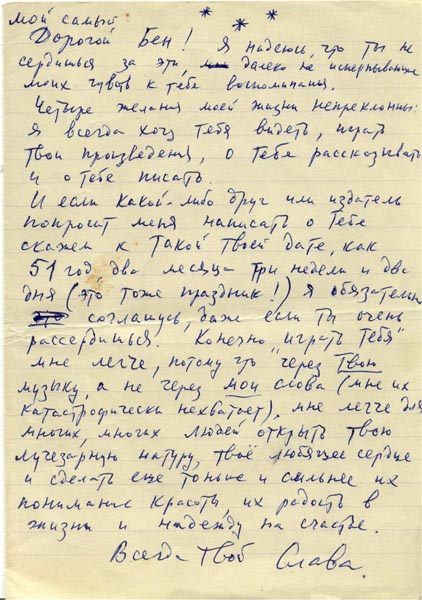 * * *
мой самый
Дорогой Бен! Я надеюсь, что ты не
сердишься за эти, далеко не исчерпывающие
моих чувств к тебе воспоминания.
Четыре желания моей жизни непреклонны:
я всегда хочу тебя видеть, играть
твои произведения, о тебе рассказывать
и о тебе писать.
И если какой-либо друг или издатель
попросит меня написать о тебе
скажем к такой твоей дате, как
51 год два месяца три недели и два
дня (это тоже праздник!) я обязательно
соглашусь, даже если ты очень
рассердишься. Конечно "играть тебя"
мне легче, потому что через твою
музыку, а не через мои слова (мне их
катастрофически нехватает), мне легче для
многих, многих людей открыть твою
лучезарную натуру, твоё любящее сердце
и сделать еще тоньше и сильнее их
понимание красоты, их радость в
жизни и надежду на счастье.
Всегда твой Слава.